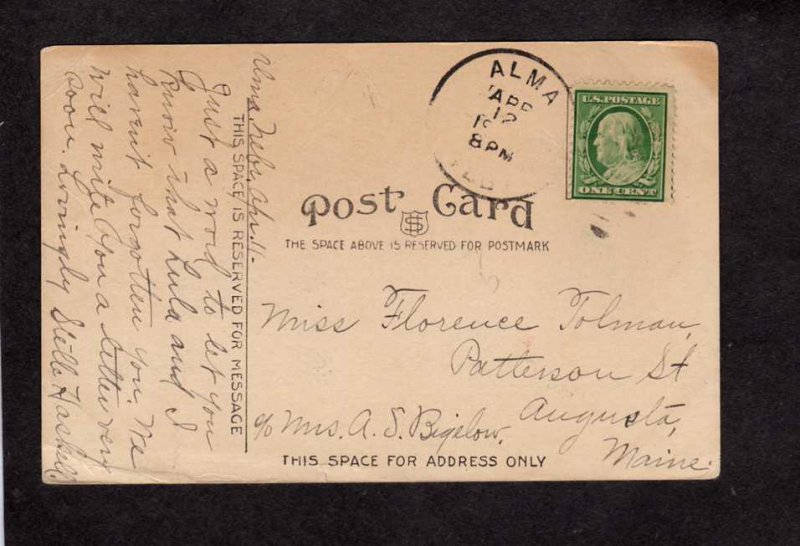 Alma, Nebr. Apr. 11.
Just a word to let you
know that Lula and I
havent forgotten you. We
will write you a letter very
soon. Lovingly Stella Haskell.
THIS SPACE IS RESERVED FOR MESSAGE
ALMA
APR
12
8PM
NEB
U.S. POSTAGE
ONE CENT
Post Card
THE SPACE ABOVE IS RESERVED FOR POSTMARK
Miss Florence Tolman,
Patterson St
Augusta,
c/o Mrs. A. S. Bigelow.
Maine.
THIS SPACE FOR ADDRESS ONLY